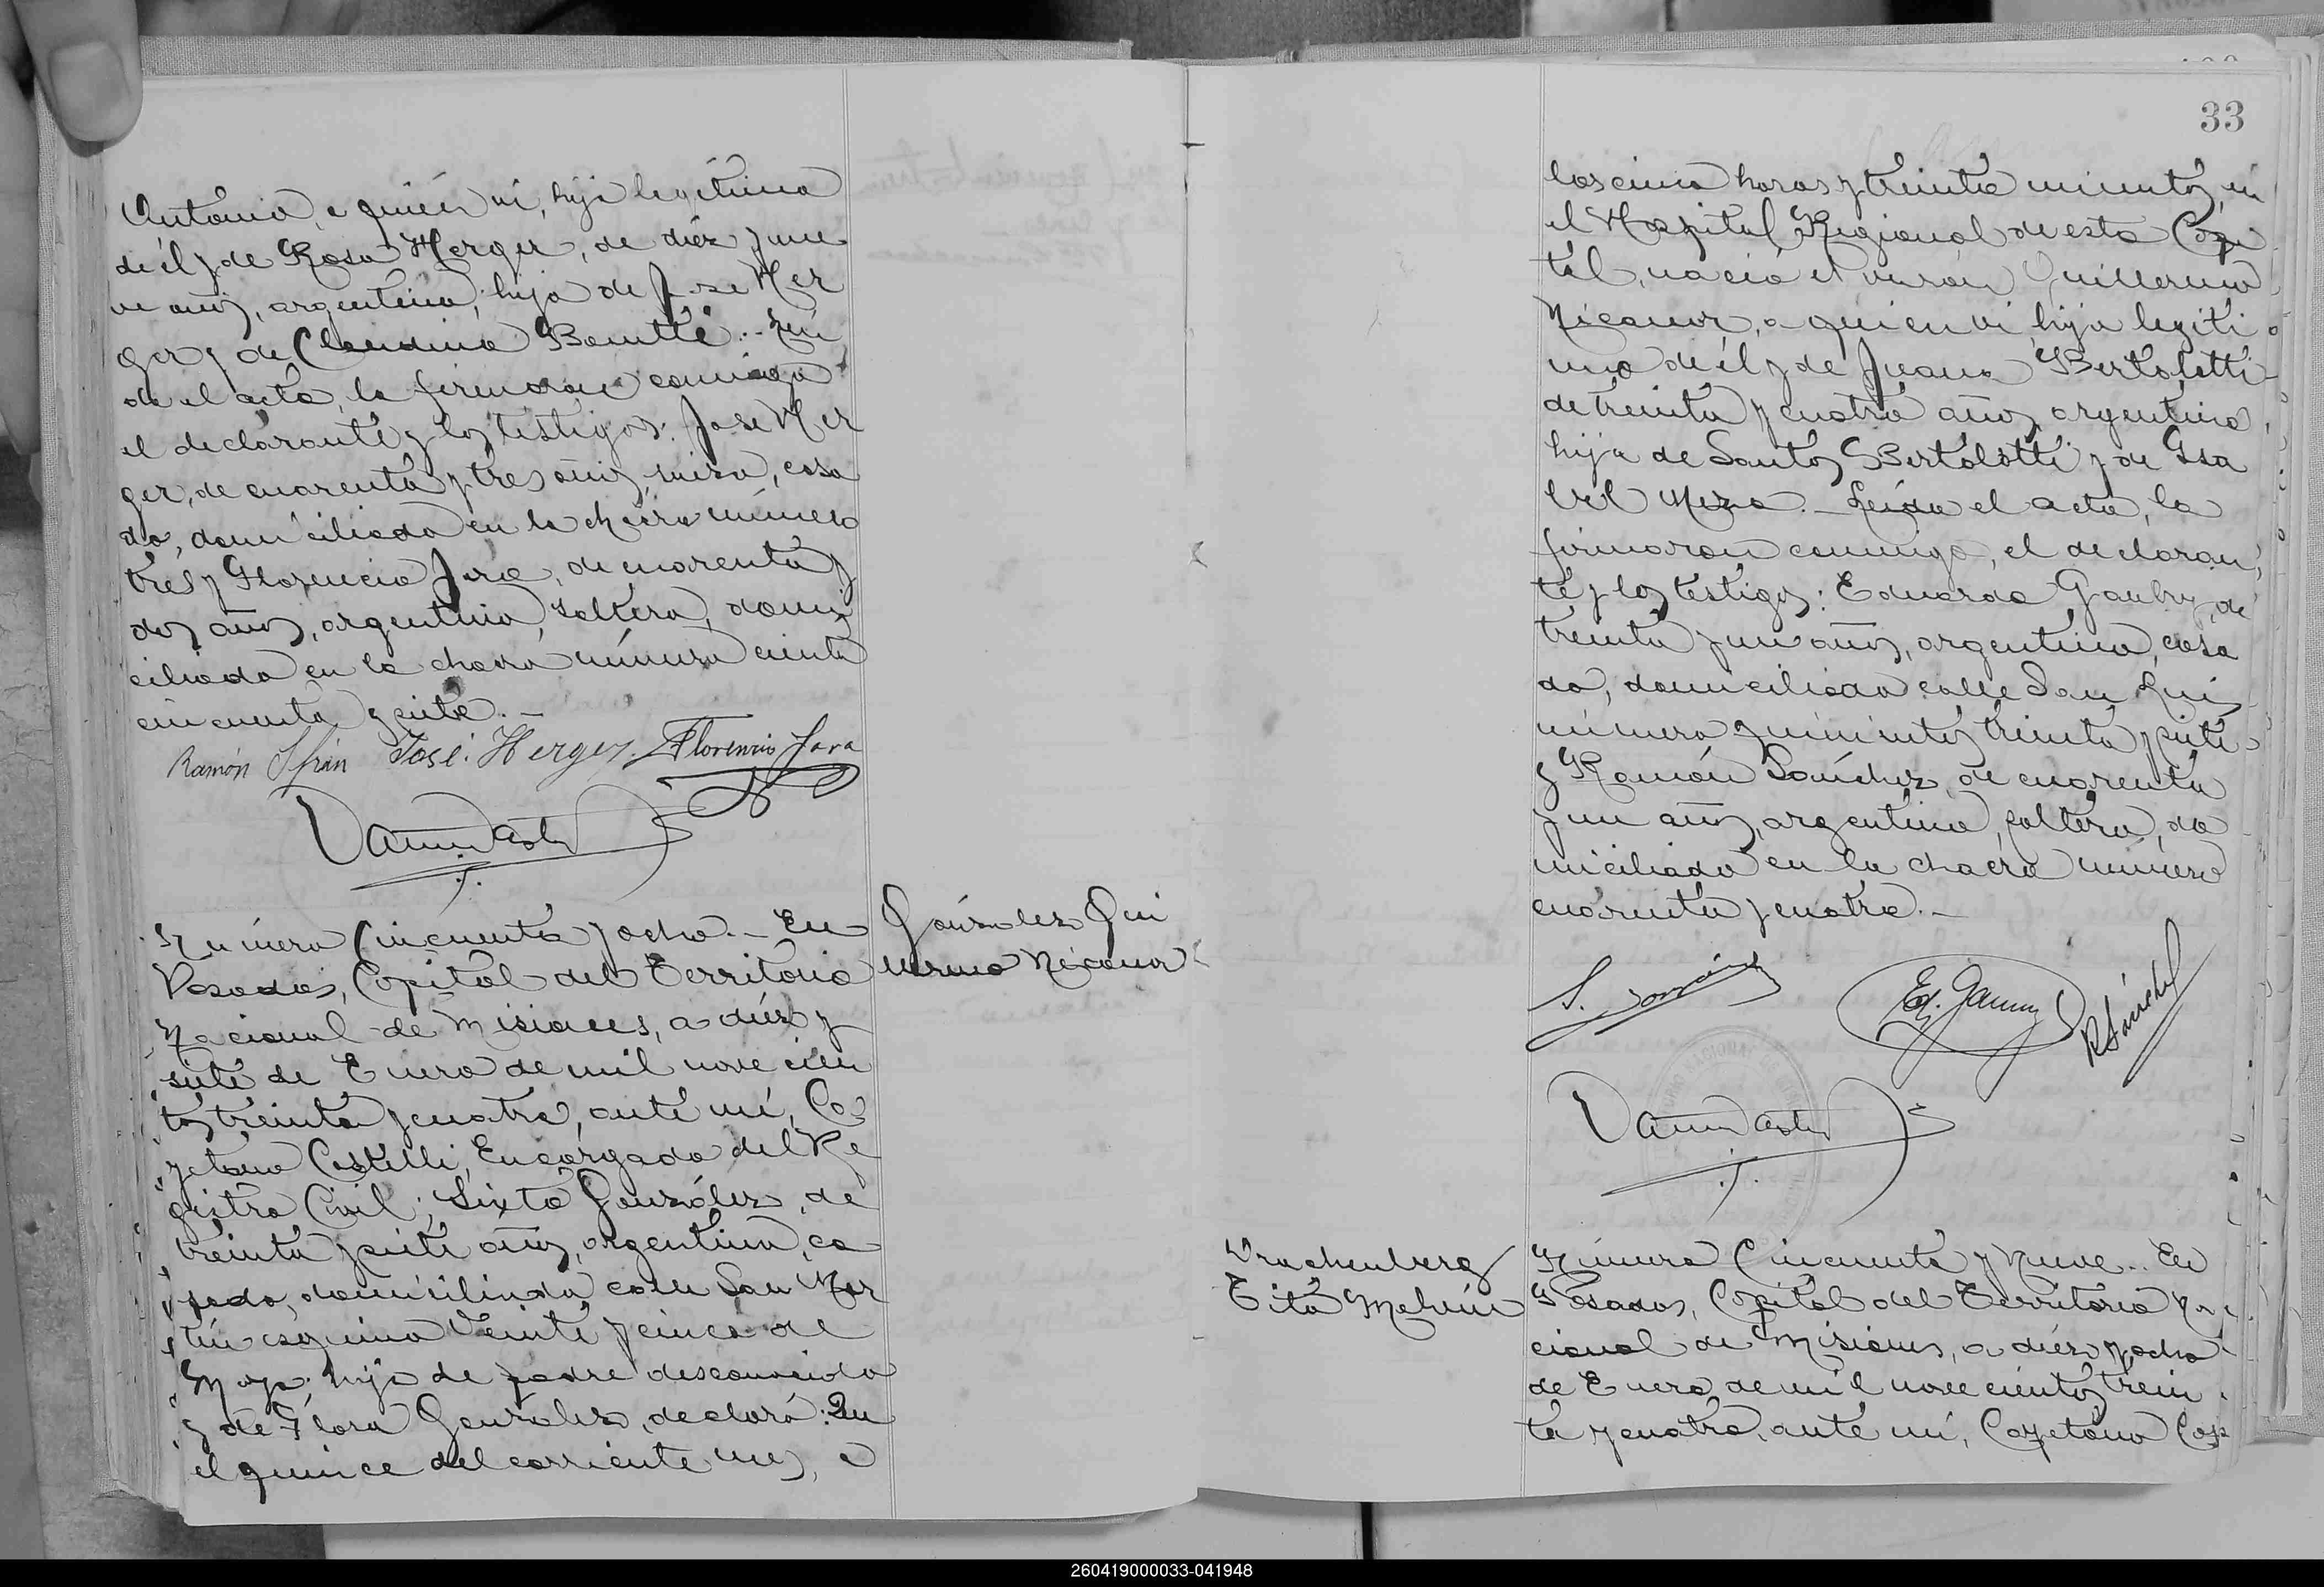 Antonio, a quién ví, hijo legítimo
de él y de Rosa Herger, de diez y nue
ve años, argentina, hija de José Her
ger y de Claudina Boutte.- Leí
da el acta, la firmaron conmigo
el declarante y los testigos: José Her
ger, de cuarenta y tres años, suizo, casa
do, domiciliado en la chacra número
tres y Florencio Jara, de cuarenta y
dos años, argentino, soltero, domi
ciliado en la chacra número ciento
cincuenta y siete.-
Ramón Ifrán José Herger Florencio Jara
Número Cincuenta y ocho.- En
Posadas, Capital del Territorio
Nacional de Misiones, a diez y
siete de Enero de mil nove cien
tos treinta y cuatro, ante mí, Ca
yetano Castelli, Encargado del Re
gistro Civil; Sixto González, de
treinta y siete años, argentino, ca
sado, domiciliado calle San Mar
tín esquina Veinte y cinco de
Mayo, hijo de padre desconocido
y de Flora González, declaró: Qu
el quince del corriente mes, a
González Gui
llermo Nicanor
33
las cinco horas y treinta minutos, en
el Hospital Regional de esta Capi
tal, nació el varón Guillermo
Nicanor, a quien ví hijo legíti
mo de él y de Juana Bertolotti
de treinta y cuatro años, argentina,
hija de Santos Bertolotti y de Isa
bel Meza.- Leída el acta, la
firmaron conmigo, el declaran
te y los testigos: Eduardo Gauhy, de
treinta y un años, argentino, casa
do, domiciliado calle San Luis
número quinientos treinta y siete
y Ramón Sánchez, de cuarenta
y un años, argentino, soltero, do
miciliado en la chacra número
cuarenta y cuatro.-
S. González
R Sánchez
Drachenberg
Tito Melvin
Número Cincuenta y Nueve.- En
Posadas, Capital del Territorio Na
cional de Misiones, a diez y ocho
de Enero de mil nove cientos trein
ta y cuatro, ante mí, Cayetano Cas
260419000033-041948